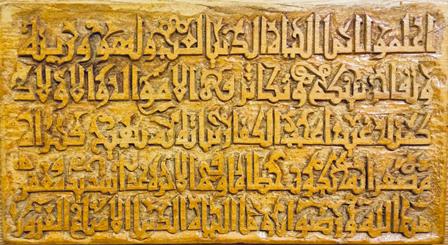 اعلموا انما الحياة الدنيا لعب ولهو وزينة
وتفاخر بينكم وتكاثر في الاموال والاولاد
كمثل غيث اعجب الكفار نباته ثم يهيج فتراه
مصفرا ثم يكون حطاما وفي الاخرة عذاب شديد ومغفرة
من الله ورضوان وما الحياة الدنيا الا متاع الغرور